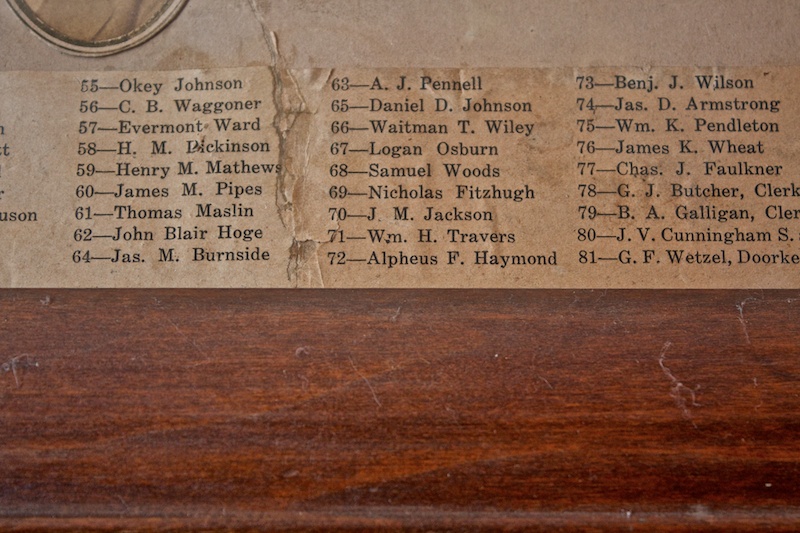 55—Okey Johnson
56—C. B. Waggoner
57—Evermont Ward
58—H. M. Dickinson
59—Henry M. Mathews
60—James M. Pipes
uson
61—Thomas Maslin
62—John Blair Hoge
64—Jas. M. Burnside
63—A. J. Pennell
65—Daniel D. Johnson
66—Waitman T. Wiley
67—Logan Osburn
68—Samuel Woods
69—Nicholas Fitzhugh
70—J. M. Jackson
71—Wm. H. Travers
72—Alpheus F. Haymond
73—Benj. J. Wilson
74—Jas. D. Armstrong
75—Wm. K. Pendleton
76—James K. Wheat
77—Chas. J. Faulkner
78—G. J. Butcher, Clerk
79—B. A. Galligan, Cler
80—J. V. Cunningham S.
81—G. F. Wetzel, Doorke